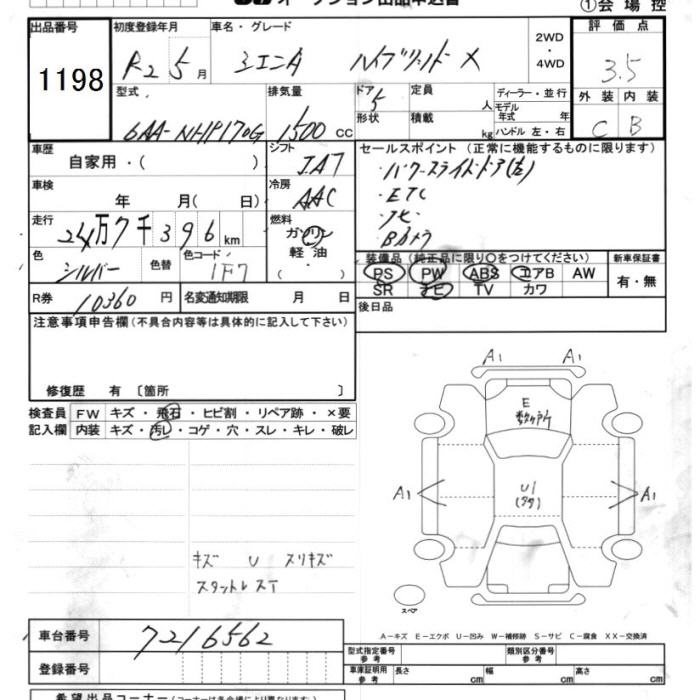 オークション出品申込書
①会場控
出品番号 1198
初度登録年月 R2 5月
車名・グレード シエンタ ハイブリッド X
2WD・4WD
評価点 3.5
型式 6AA-NHP170G
排気量 1500 CC
ドア 5
形状
定員 人
積載 kg
ディーラー・並行
モデル年式 年
ハンドル 左・右
外装 C 内装 B
車歴 自家用・( )
シフト IA7
セールスポイント (正常に機能するものに限ります)
・パワースライドドア(左)
・ETC
・ナビ
・Bカメラ
車検 年 月( 日)
冷房 AAC
走行 24万7千396km
燃料 ガソリン 軽油 ( )
色 シルバー
色替
色コード 1F7
装備品(純正品に限り○をつけてください)
PS PW ABS エアB AW
SR ナビ TV カワ
新車保証書 有・無
R券 10360円
名変通知期限 月 日
後日品
注意事項申告欄(不具合内容等は具体的に記入して下さい)
修復歴 有〔箇所 〕
検査員記入欄
FW キズ・飛石・ヒビ割・リペア跡・×要
内装 キズ・汚レ・コゲ・穴・スレ・キレ・破レ
A1 A1
E
数ヶ所
A1 U1 A1
キズ U スリキズ
スタットレスT
スペア
A-キズ E-エクボ U-凹み W-補修跡 S-サビ C-腐食 XX-交換済
車台番号 7216562
登録番号
型式指定番号 参考
類別区分番号 参考
車庫証明用 参考 長さ cm 幅 cm 高さ cm
希望出品コーナー